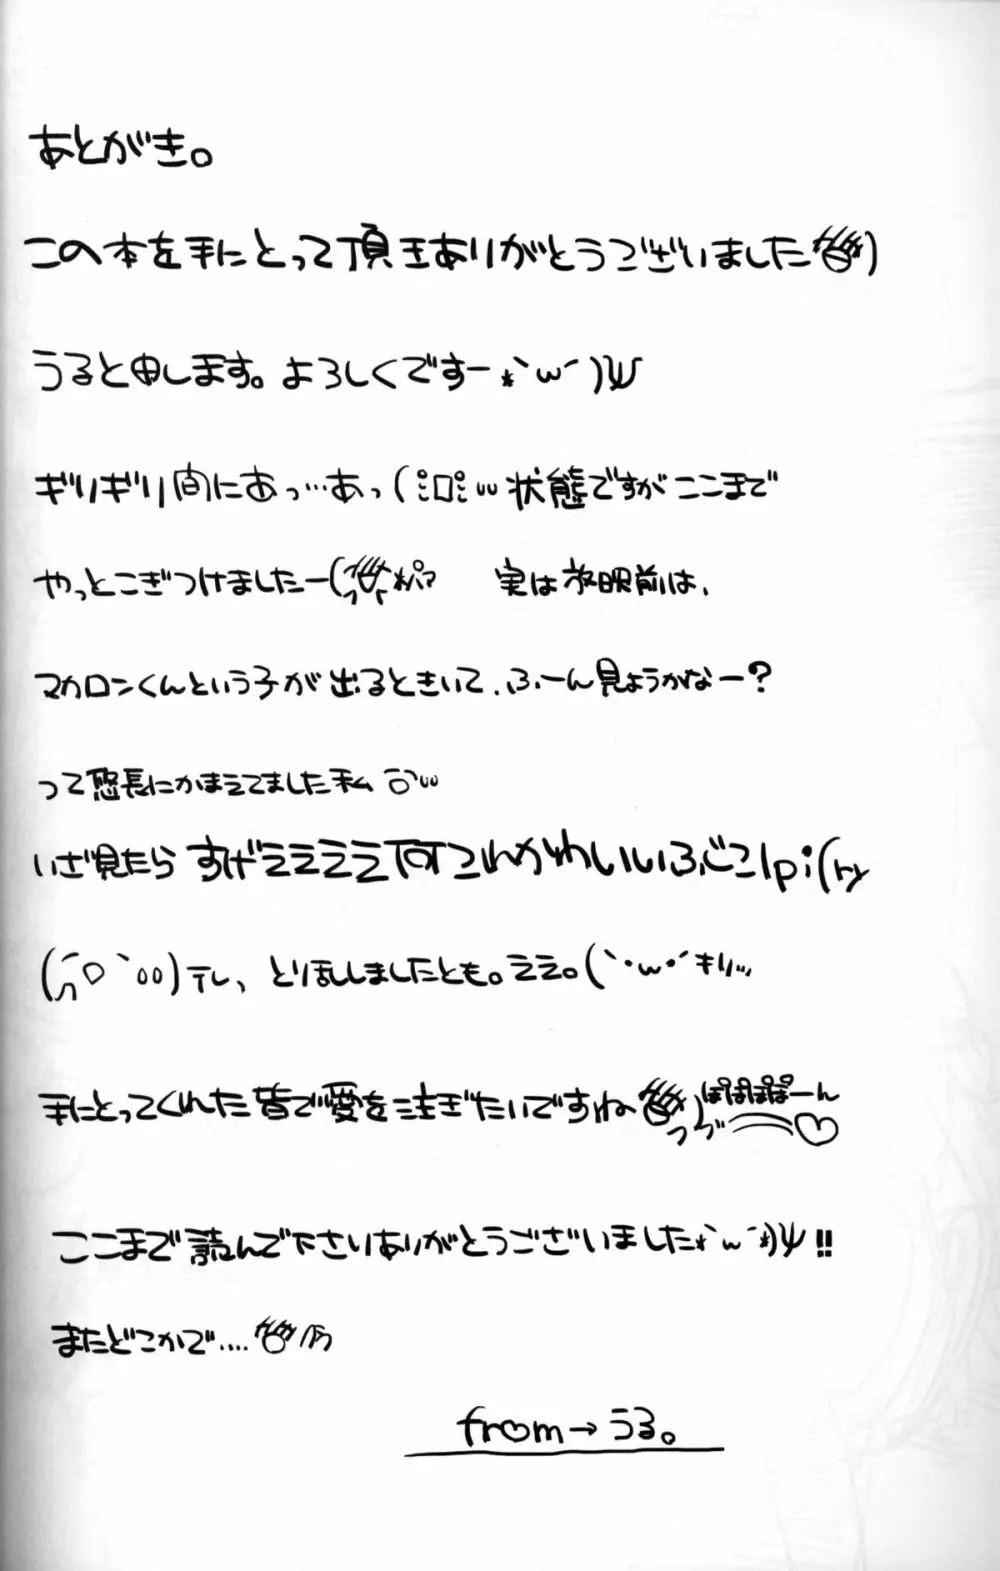 あとがき。
この本を手にとって頂きありがとうございました
うると申します。よろしくですー *`ω´)ψ
ギリギリ間にあっ…あっ( ﾟロﾟ 状態ですがここまで
やっとこぎつけましたー( 実は放映前は、
マカロンくんという子が出るときいて、ふーん見ようかなー？
って悠長にかまえてました私
いざ見たら すげえええええ何これかわいいいふじこlpi(ry
(´D｀○○)テレ、とり乱しましたとも。ええ。(｀・ω・´キリッ
手にとってくれた皆で愛を注ぎたいですね ぽぽぽぽーん
ここまで読んで下さりありがとうございました*｀ω´*)ψ!!
またどこかで....
from→うる。